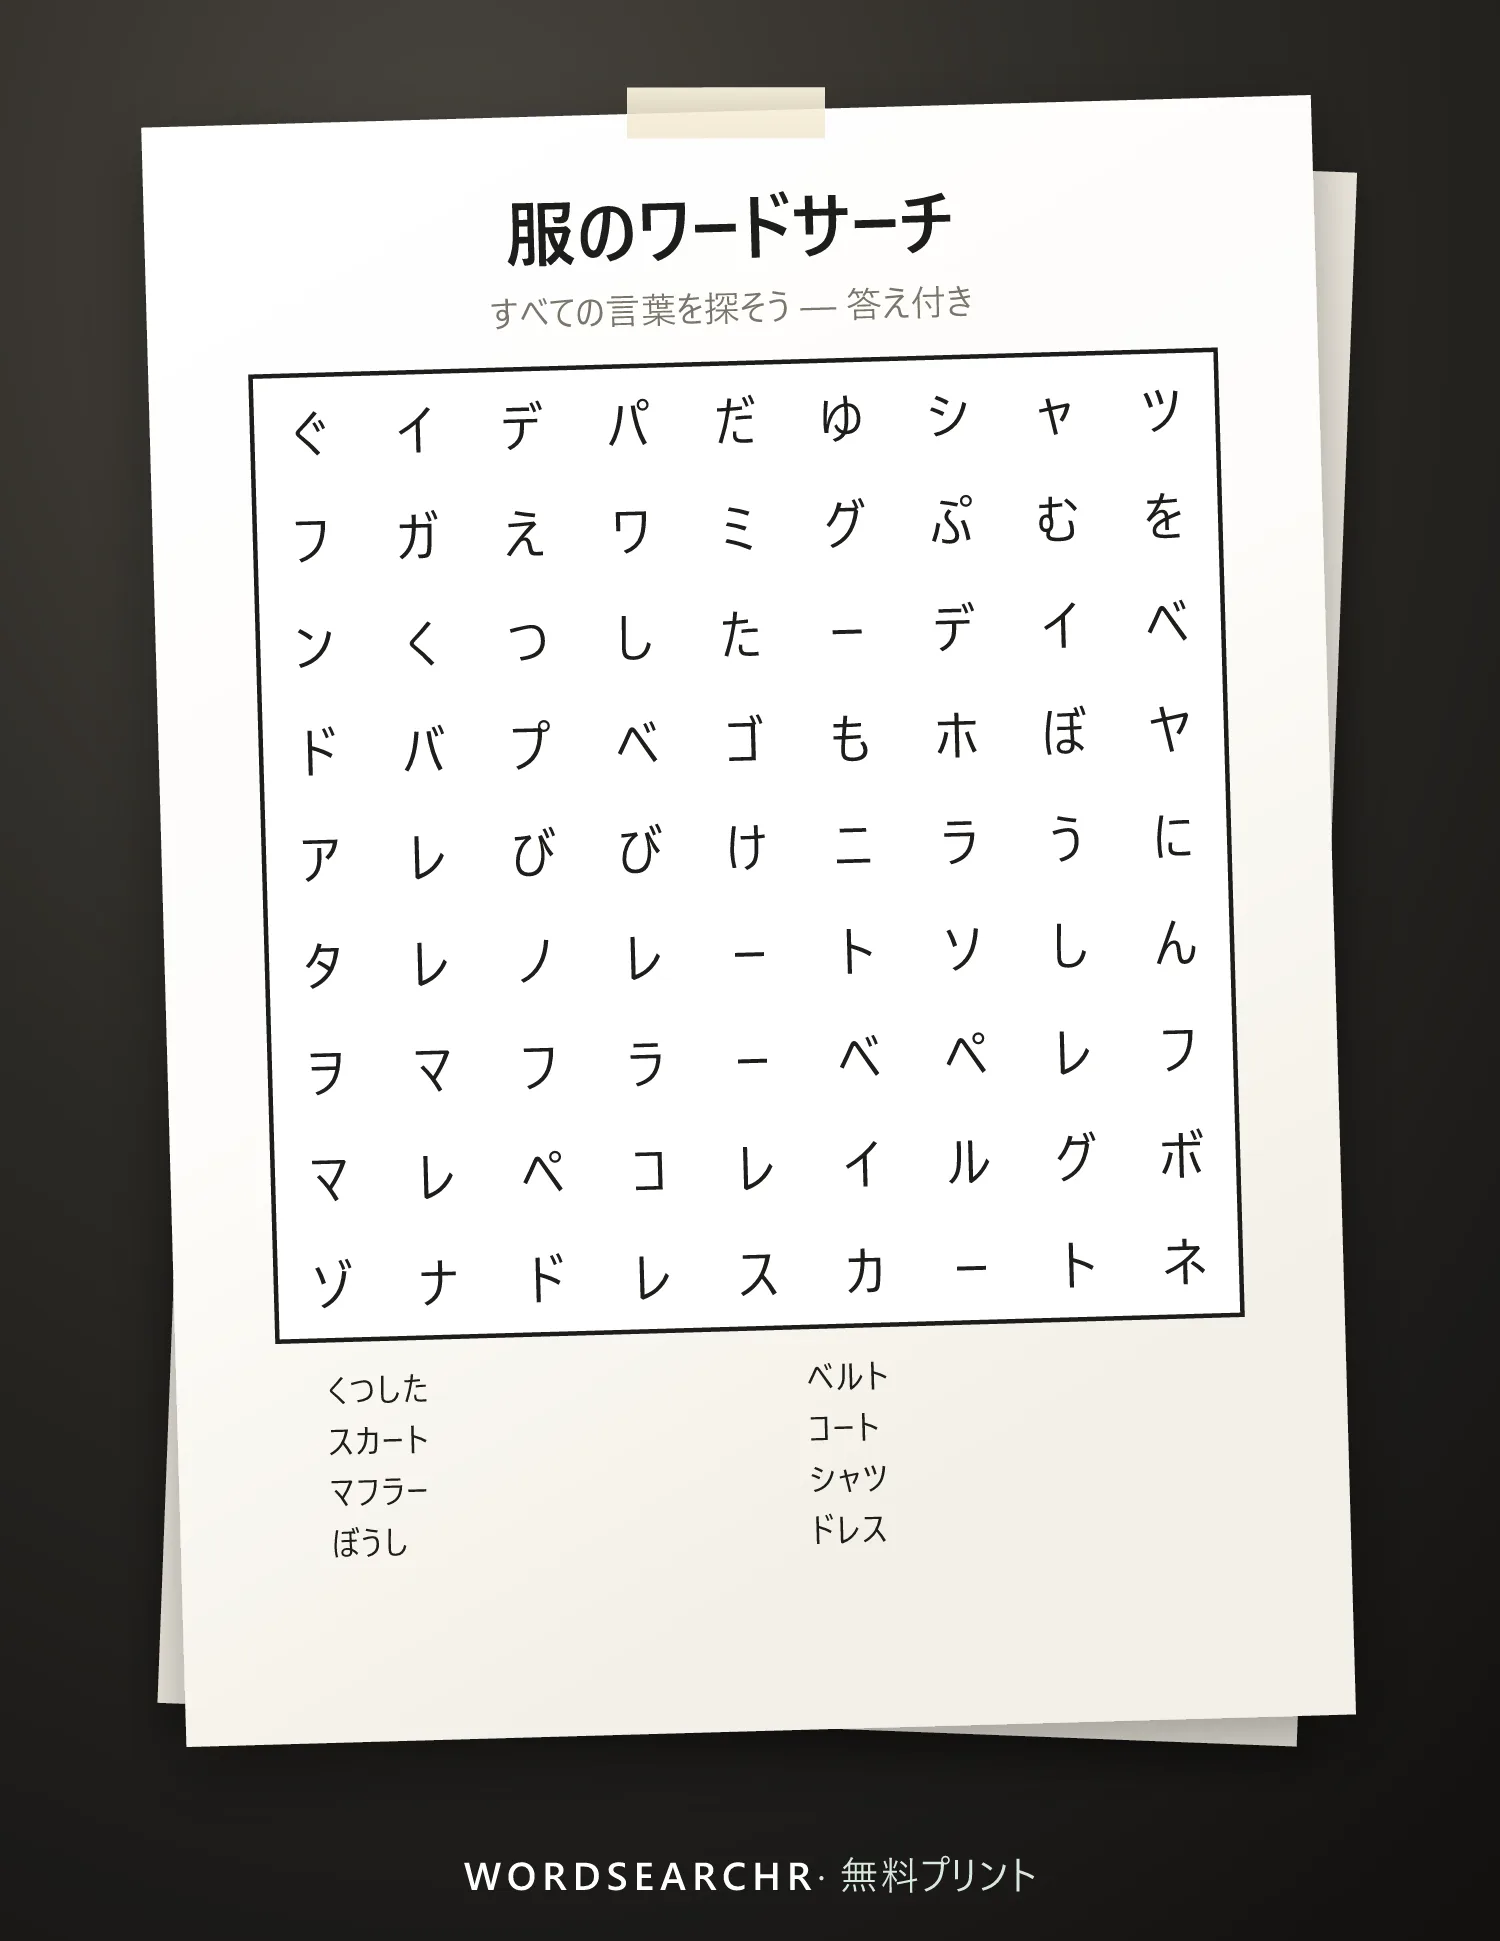 服のワードサーチ
すべての言葉を探そう — 答え付き
ぐ イ デ パ だ ゆ シ ャ ツ
フ ガ え ワ ミ グ ぷ む を
ン く つ し た ー デ イ ベ
ド バ プ ベ ゴ も ホ ぼ ヤ
ア レ び び け ニ ラ う に
タ レ ノ レ ー ト ソ し ん
ヲ マ フ ラ ー ベ ペ レ フ
マ レ ペ コ レ イ ル グ ボ
ゾ ナ ド レ ス カ ー ト ネ
くつした ベルト
スカート コート
マフラー シャツ
ぼうし ドレス
WORDSEARCHR· 無料プリント